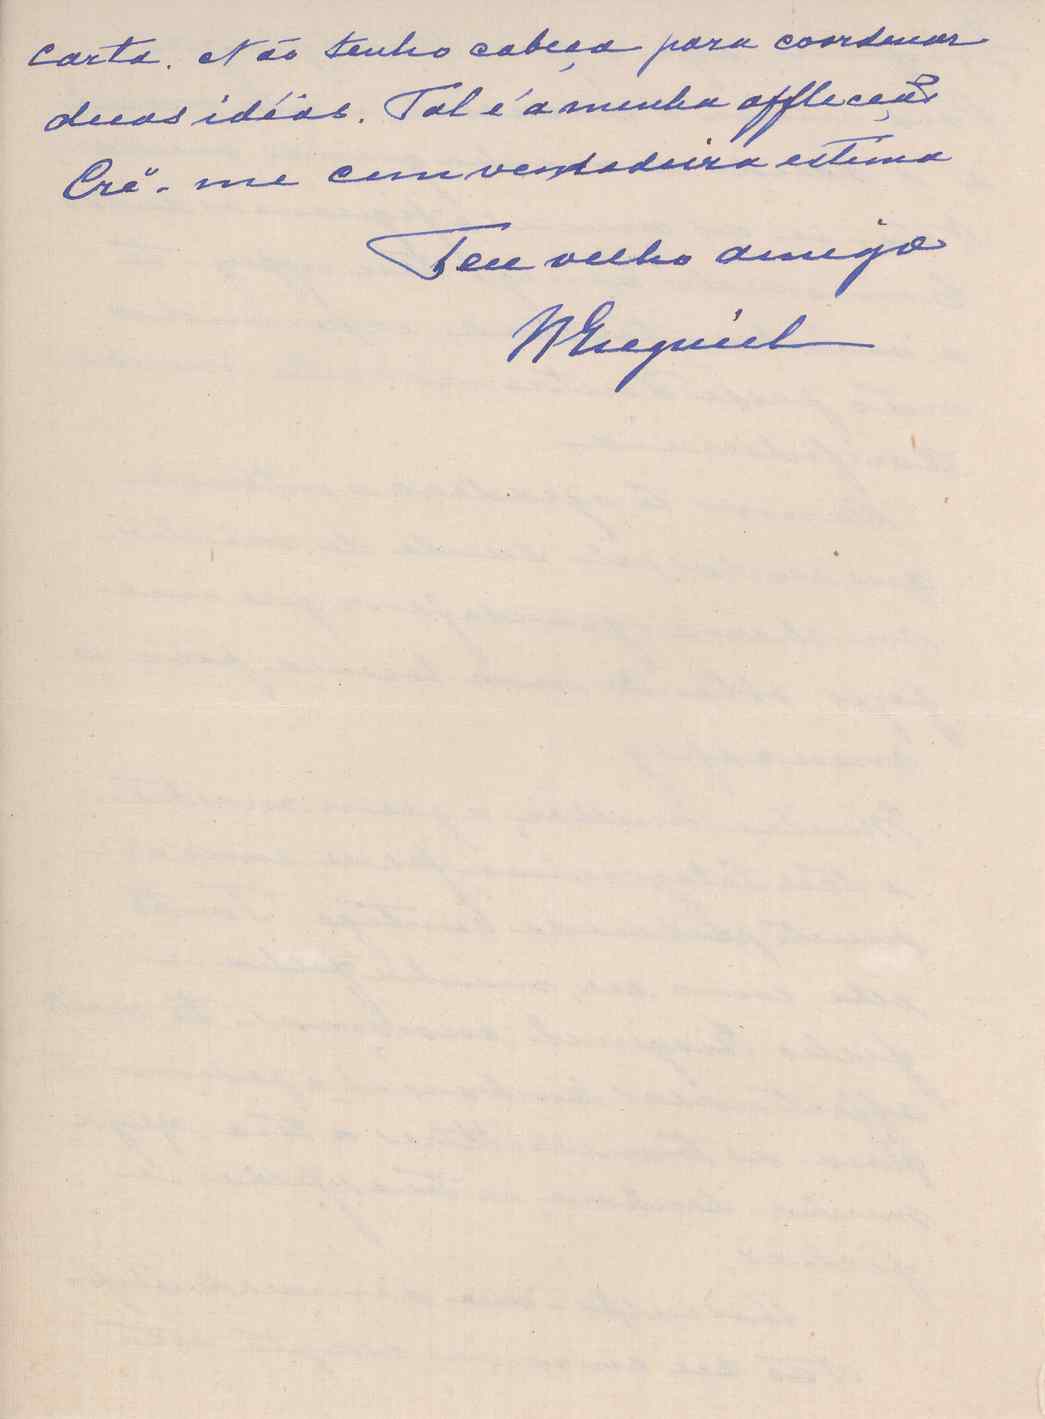 carta. Não tenho cabeça para coordenar
duas idéas. Tal é a minha afflicção
Crê-me com verdadeira estima
Teu velho amigo
Esequiel